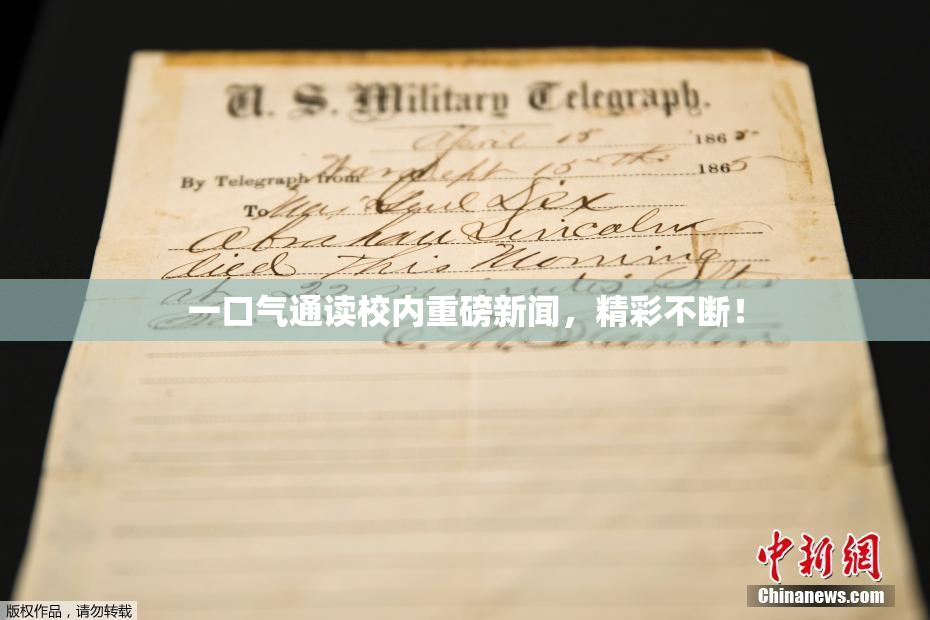 U. S. Military Telegraph.
April 15 1865
By Telegraph from War Dept 15th 1865
To Maj Genl Dix
Abraham Lincoln
died This Morning
at 22 minutes after
一口气通读校内重磅新闻，精彩不断！
中新网
Chinanews.com
版权作品，请勿转载